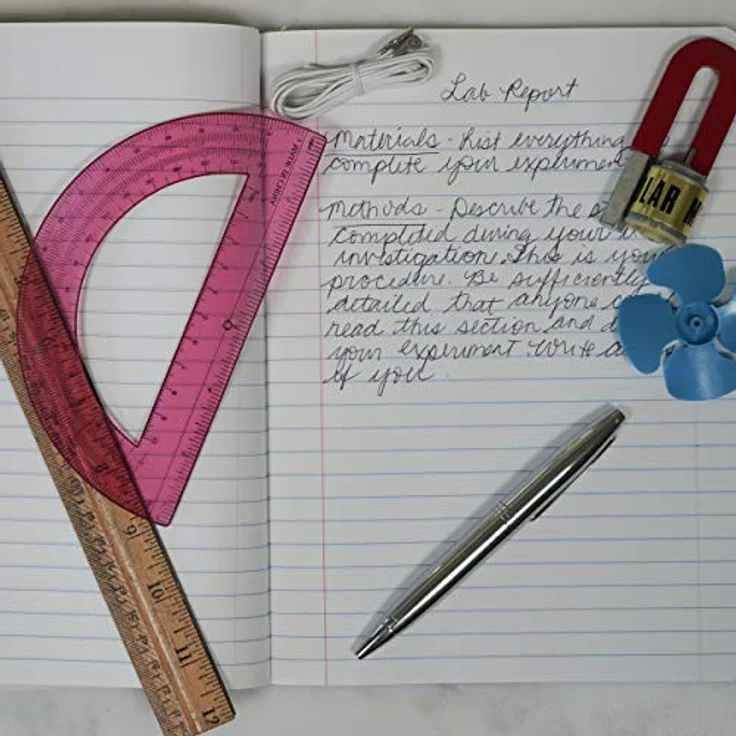 Lab Report
Materials - List everything
complete your experiment
Methods - Describe the
completed during your
investigation. This is your
procedure. Be sufficiently
detailed that anyone
read this section and
your experiment. Write
if you
LAR M
8
9
10
11
12